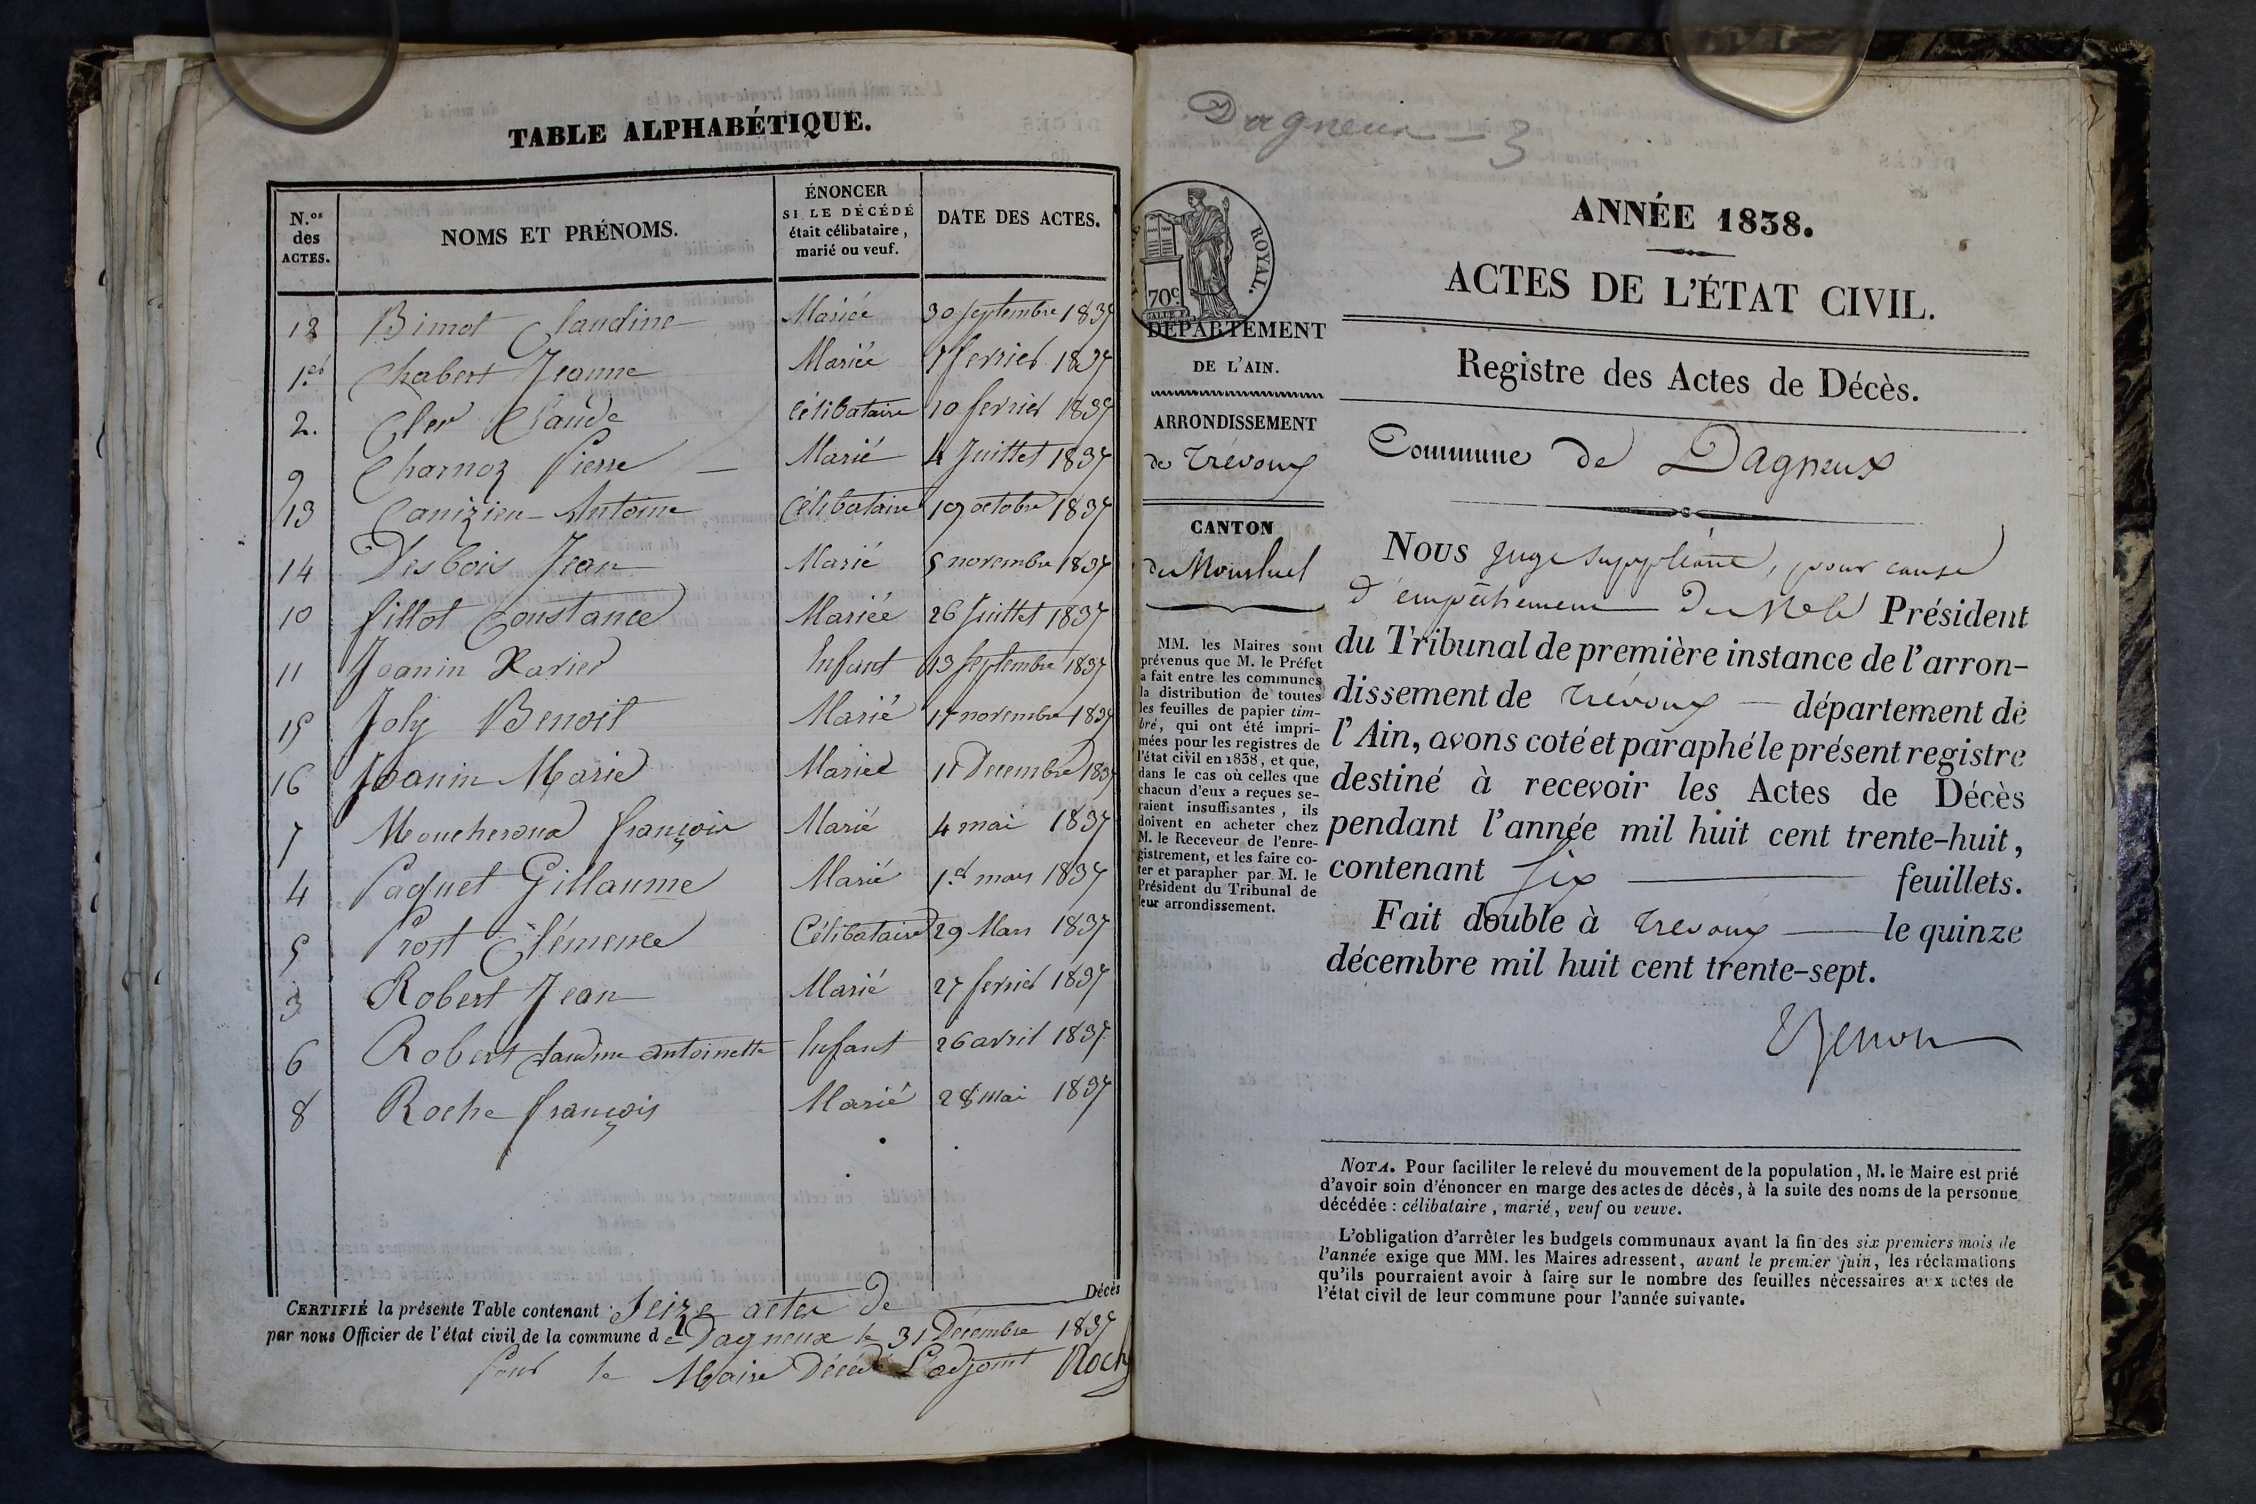 TABLE ALPHABÉTIQUE.
N.os des ACTES.
NOMS ET PRÉNOMS.
ÉNONCER
SI LE DÉCÉDÉ
était célibataire,
marié ou veuf.
DATE DES ACTES.
12 Bimot Claudine Mariée 30 septembre 1837
1.er Chabert Jeanne Mariée 7 fevrier 1837
2. Cler Claude Célibataire 10 fevrier 1837
9 Charnoz Pierre — Marié 4 Juillet 1837
13 Canizieu Antoine Célibataire 19 octobre 1837
14 Desbois Jean Marié 5 novembre 1837
10 fillot Constance Mariée 26 Juillet 1837
11 Joanin Xavier Enfant 13 septembre 1837
15 Joly Benoit Marié 17 novembre 1837
16 Joanin Marie Mariée 11 Decembre 1837
7 Moucheroud françois Marié 4 mai 1837
4 Paquet Gillaume Marié 1.er mars 1837
5 Prost Clémence Célibataire 29 Mars 1837
3 Robert Jean Marié 27 fevrier 1837
6 Robert Claudine antoinette Enfant 26 avril 1837
8 Roche françois Marié 28 mai 1837
CERTIFIÉ la présente Table contenant Seize actes de Décès
par nous Officier de l'état civil de la commune de Dagneux le 31 Décembre 1837
Pour le Maire Décédé L'adjoint Roch
Dagneux - 3
ROYAL.
70c.
ANNÉE 1838.
ACTES DE L'ÉTAT CIVIL.
Registre des Actes de Décès.
Commune de Dagneux
DÉPARTEMENT
DE L'AIN.
ARRONDISSEMENT
de Trévoux
CANTON
de Montluel
MM. les Maires sont
prévenus que M. le Préfet
a fait entre les communes
la distribution de toutes
les feuilles de papier tim-
bré, qui ont été impri-
mées pour les registres de
l'état civil en 1838, et que,
dans le cas où celles que
chacun d'eux a reçues se-
raient insuffisantes, ils
doivent en acheter chez
M. le Receveur de l'enre-
gistrement, et les faire co-
ter et parapher par M. le
Président du Tribunal de
leur arrondissement.
Nous Juge suppléant, pour cause
d'empêchement de M. le Président
du Tribunal de première instance de l'arron-
dissement de Trévoux — département de
l'Ain, avons coté et paraphé le présent registre
destiné à recevoir les Actes de Décès
pendant l'année mil huit cent trente-huit,
contenant six feuillets.
Fait double à Trévoux — le quinze
décembre mil huit cent trente-sept.
NOTA. Pour faciliter le relevé du mouvement de la population, M. le Maire est prié
d'avoir soin d'énoncer en marge des actes de décès, à la suite des noms de la personne
décédée : célibataire, marié, veuf ou veuve.
L'obligation d'arrêter les budgets communaux avant la fin des six premiers mois de
l'année exige que MM. les Maires adressent, avant le premier juin, les réclamations
qu'ils pourraient avoir à faire sur le nombre des feuilles nécessaires aux actes de
l'état civil de leur commune pour l'année suivante.